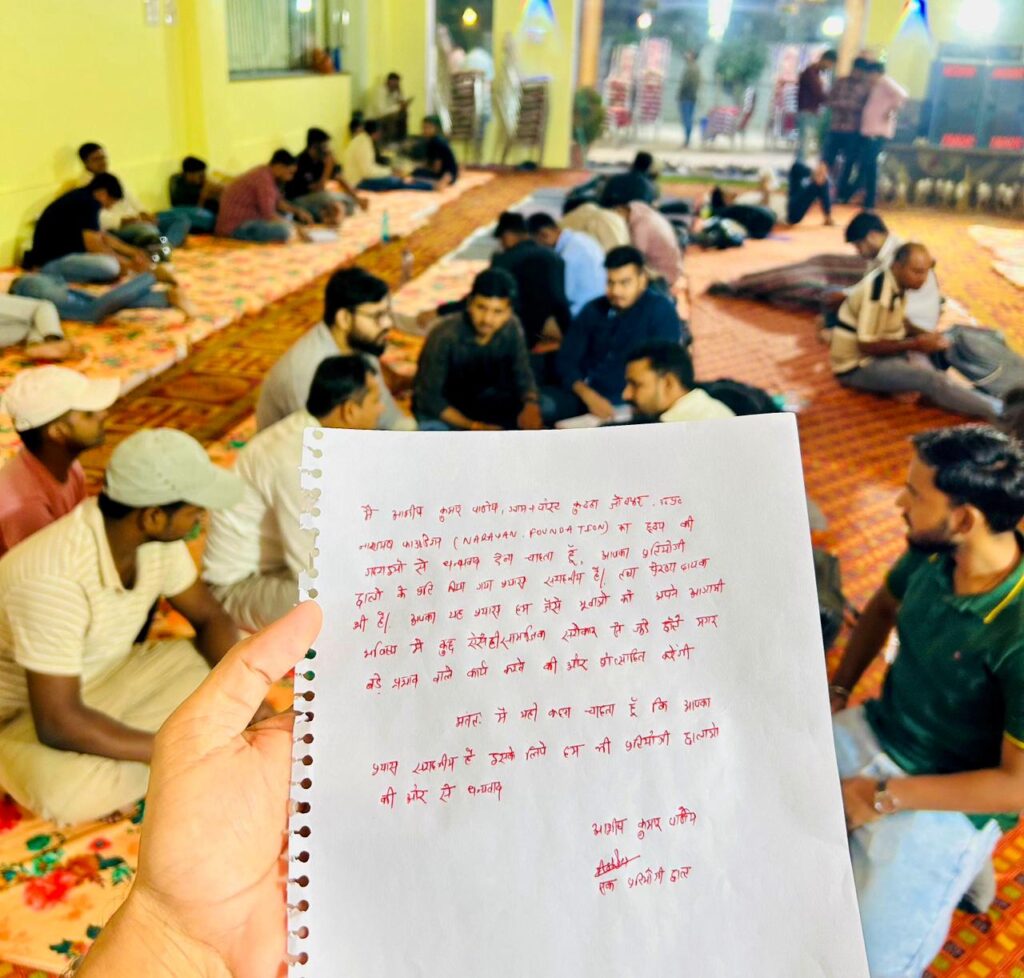 मैं आशीष कुमार पाण्डेय, ग्राम + पोस्ट
नारायण फाउंडेशन (NARAYAN FOUNDATION) का हृदय की
गहराइयों से धन्यवाद देना चाहता हूँ, आपका प्रतियोगी
छात्रों के प्रति किया गया प्रयास सराहनीय है। तथा प्रेरणा दायक
भी है। आपका यह प्रयास हम जैसे युवाओं को अपने आगामी
भविष्य में कुछ ऐसे ही सामाजिक सरोकार से जुड़े छोटे मगर
बड़े प्रभाव वाले कार्य करने की और प्रोत्साहित करेगी
अंततः मैं यही कहना चाहता हूँ कि आपका
प्रयास सराहनीय है इसके लिये हम भी प्रतियोगी छात्रों
की ओर से धन्यवाद
आशीष कुमार पाण्डेय
एक प्रतियोगी छात्र